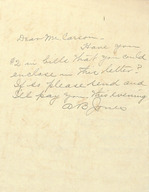 Dear Mr. Carson:
Have you
$2 in bills that you could
enclose in this letter?
If so please send and
I'll pay you this evening
A B Jones